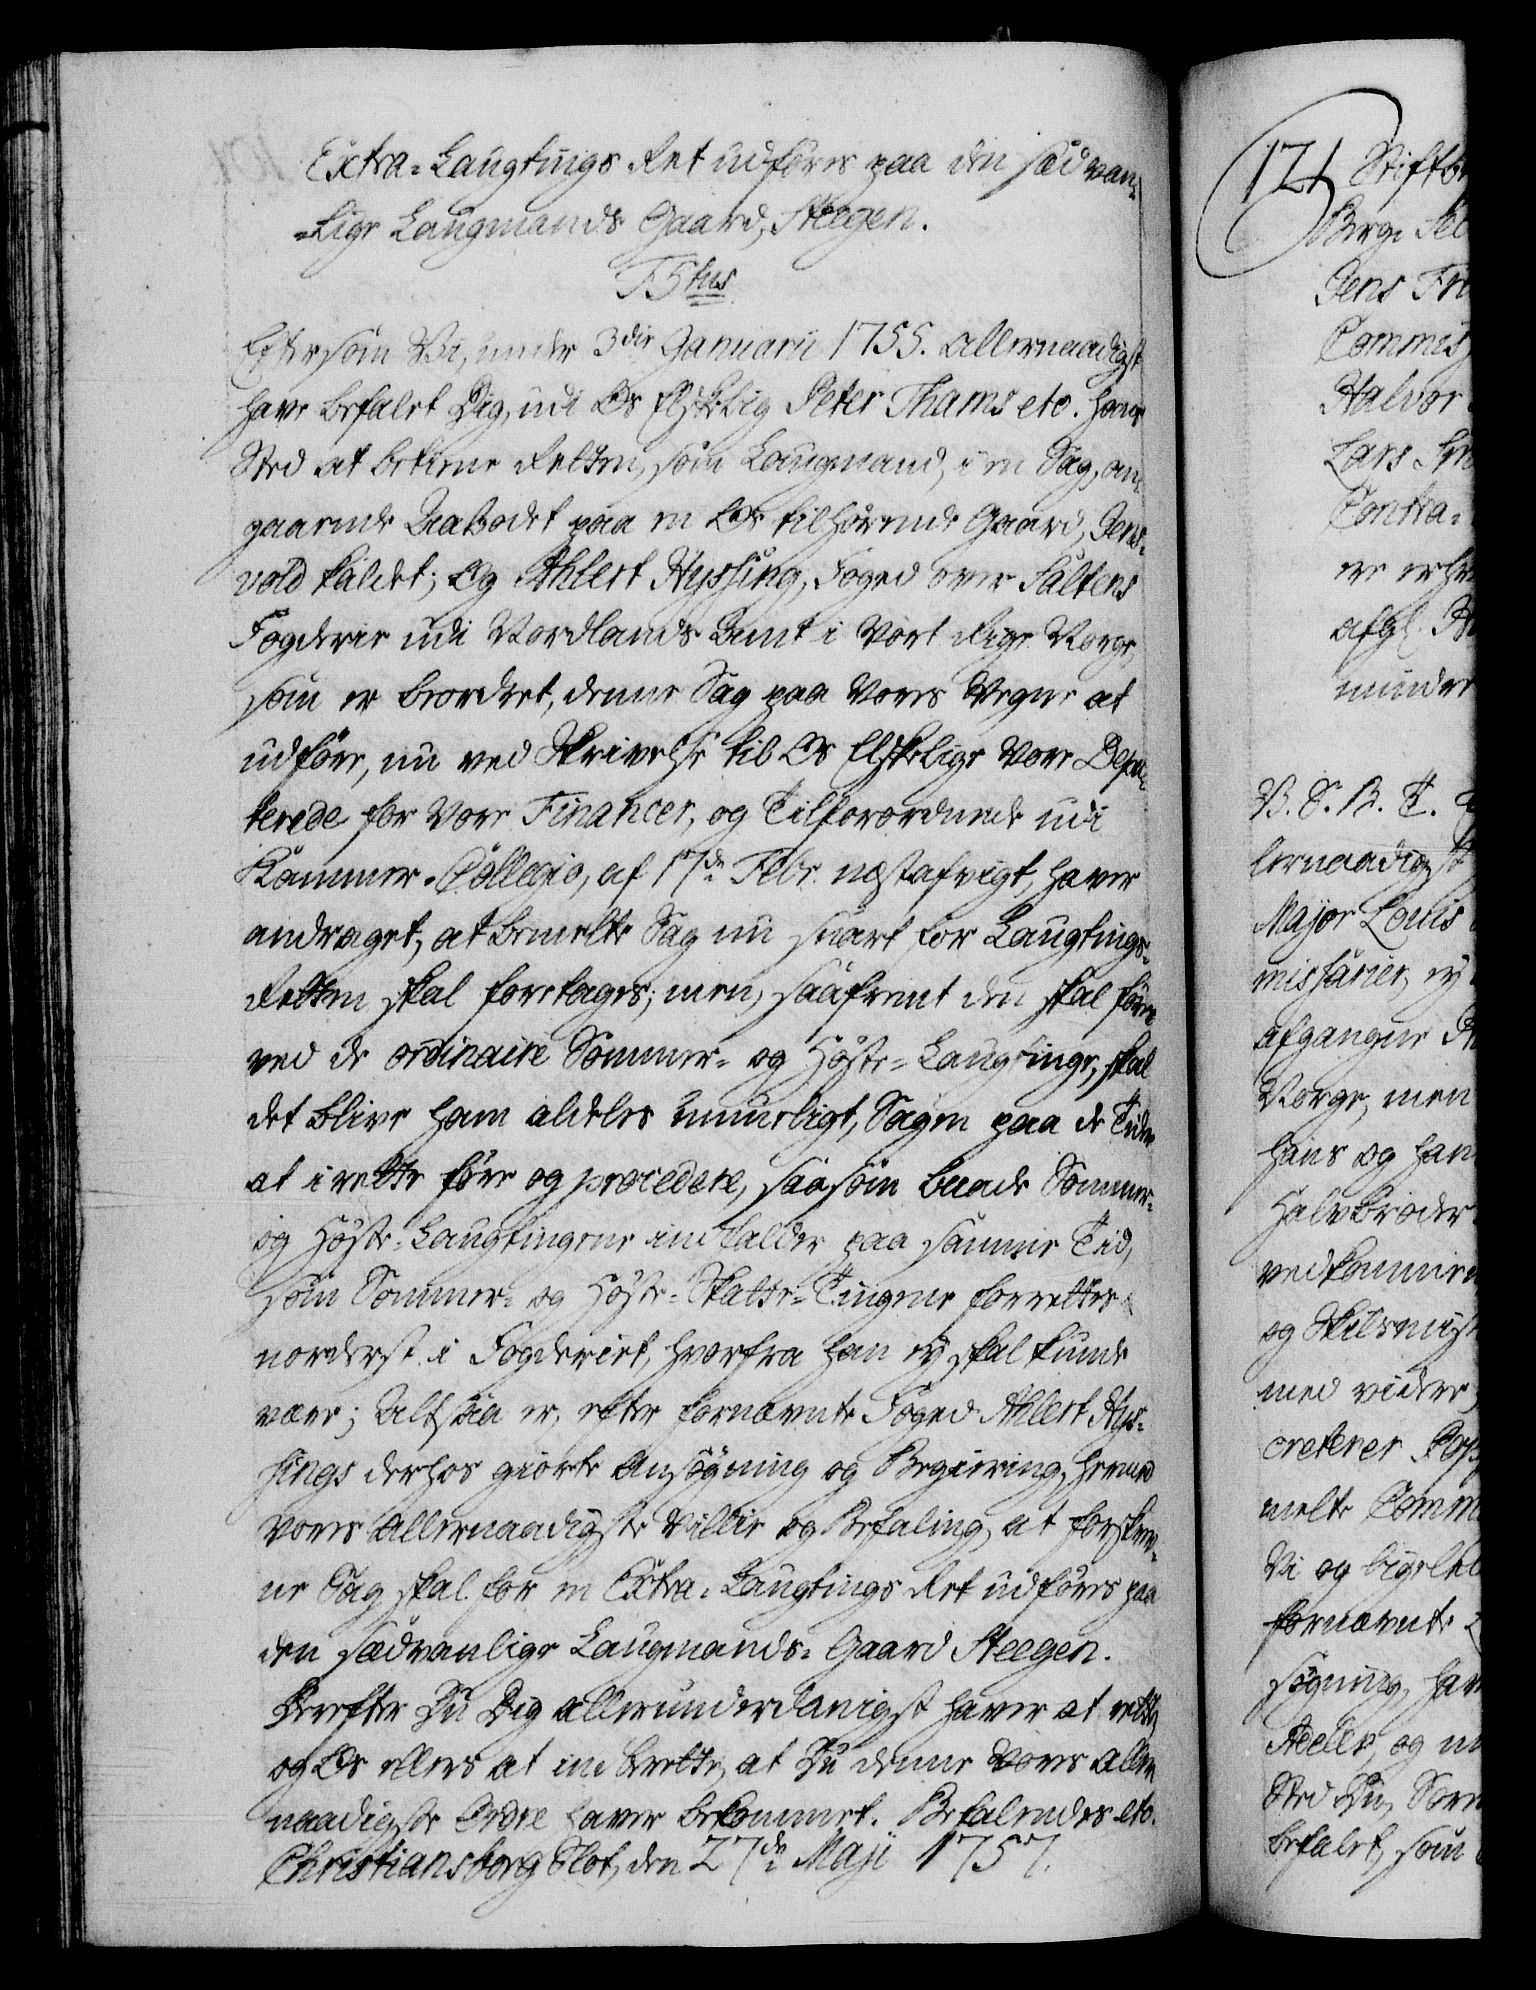 Extra-Laugtings Ret udføres paa den sædvan-
-lige Laugmands Gaard, Steegen.
F5tus
Eftersom Vi, under 3die Januarii 1755. allernaadigst
have befalet Dig, udi Os Elskelig Peter Thams etc. hans
Sted at betiene Retten, som Laugmand, i en Sag, an-
gaaende Aaboedet paa en Os tilhørende Gaard, Jens-
vold kaldet; Og Ahlert Hyssing, Foged over Saltens
Fogderie udi Nordlands Amt i Vort Rige Norge,
som er beordret, denne Sag paa Vores Vegne at
udføre, nu ved Skrivelse til Os Elskelige Vore Depu-
terede for Vore Financer, og Tilforordnede udi
Kammer-Collegio, af 17de Febr. næstafvigt, haver
andraget, at bemelte Sag nu snart for Laugtings-
Retten skal foretages; men, saafremt den skal føres
ved de ordinaire Sommer- og Høste-Laugtinge, skal
det blive ham aldeles umueligt, Sagen paa de Tider
at i rette føre og procedere, saasom baade Sommer-
og Høste-Laugtingene indfalder paa samme Tid,
som Sommer- og Høste-Skatte-Tingene forrettes
norderst i Fogderiet, hvorfra han ey skal kunde
være; Altsaa er, efter fornævnte Foged Ahlert Hys-
sings derhos giorte Ansøgning og Begiering, hermed
Vores allernaadigste Villie og Befaling, at forskrev-
ne Sag skal for en Extra-Laugtings Ret udføres paa
den sædvanlige Laugmands-Gaard Steegen.
Derefter Du Dig allerunderdanigst haver at rette,
og Os ellers at indberette, at Du denne Vores aller-
naadigste Ordre haver bekommet. Befalendes etc.
Christiansborg Slot, den 27de Maji 1757.
121 Stiftbe
Berg. Sel
Jens Fr
Commis
Halvor
Lars
Contra-
ere erhv
afgl.
mindre
V. S. B. T.
lernaadigst
Major Louis
missarier, ey
afgangne
Norge, men
hans og han
Halvbroder
vedkommen
og Skilsmis
med videre,
creterer
melte Comm
Vi og ligele
fornævnte
søgning, hav
Stelle, og
Sted Du, Soren
befalet, som